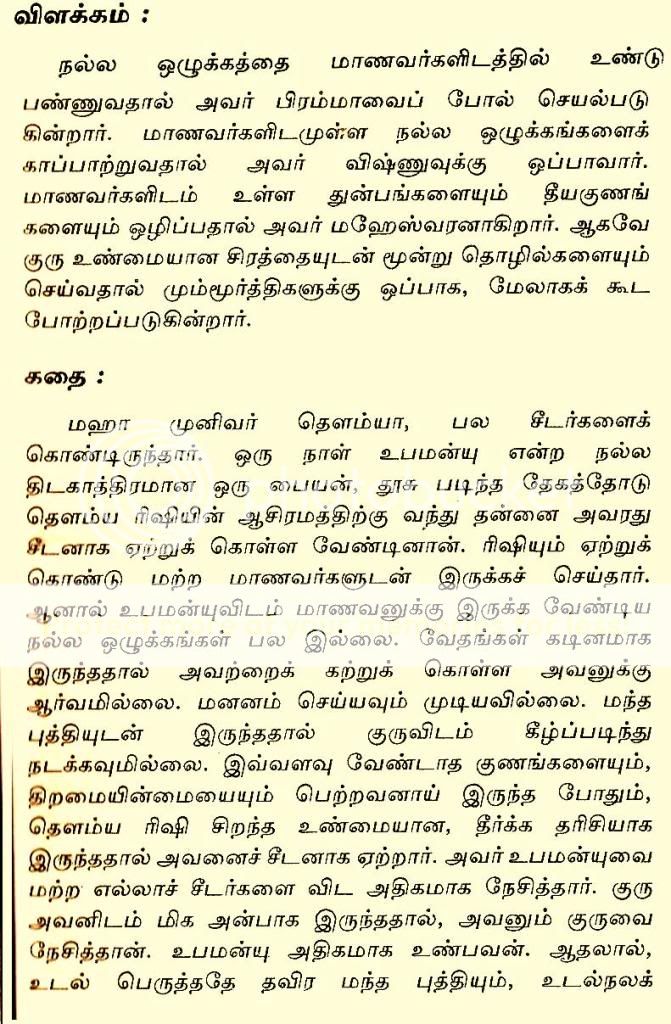 விளக்கம் :
நல்ல ஒழுக்கத்தை மாணவர்களிடத்தில் உண்டு
பண்ணுவதால் அவர் பிரம்மாவைப் போல் செயல்படு
கின்றார். மாணவர்களிடமுள்ள நல்ல ஒழுக்கங்களைக்
காப்பாற்றுவதால் அவர் விஷ்ணுவுக்கு ஒப்பாவார்.
மாணவர்களிடம் உள்ள துன்பங்களையும் தீயகுணங்
களையும் ஒழிப்பதால் அவர் மஹேஸ்வரனாகிறார். ஆகவே
குரு உண்மையான சிரத்தையுடன் மூன்று தொழில்களையும்
செய்வதால் மும்மூர்த்திகளுக்கு ஒப்பாக, மேலாகக் கூட
போற்றப்படுகின்றார்.
கதை :
மஹா முனிவர் தௌம்யா, பல சீடர்களைக்
கொண்டிருந்தார். ஒரு நாள் உபமன்யு என்ற நல்ல
திடகாத்திரமான ஒரு பையன், தூசு படிந்த தேகத்தோடு
தௌம்ய ரிஷியின் ஆசிரமத்திற்கு வந்து தன்னை அவரது
சீடனாக ஏற்றுக் கொள்ள வேண்டினான். ரிஷியும் ஏற்றுக்
கொண்டு மற்ற மாணவர்களுடன் இருக்கச் செய்தார்.
ஆனால் உபமன்யுவிடம் மாணவனுக்கு இருக்க வேண்டிய
நல்ல ஒழுக்கங்கள் பல இல்லை. வேதங்கள் கடினமாக
இருந்ததால் அவற்றைக் கற்றுக் கொள்ள அவனுக்கு
ஆர்வமில்லை. மனனம் செய்யவும் முடியவில்லை. மந்த
புத்தியுடன் இருந்ததால் குருவிடம் கீழ்ப்படிந்து
நடக்கவுமில்லை. இவ்வளவு வேண்டாத குணங்களையும்,
திறமையின்மையையும் பெற்றவனாய் இருந்த போதும்,
தௌம்ய ரிஷி சிறந்த உண்மையான, தீர்க்க தரிசியாக
இருந்ததால் அவனைச் சீடனாக ஏற்றார். அவர் உபமன்யுவை
மற்ற எல்லாச் சீடர்களை விட அதிகமாக நேசித்தார். குரு
அவனிடம் மிக அன்பாக இருந்ததால், அவனும் குருவை
நேசித்தான். உபமன்யு அதிகமாக உண்பவன். ஆதலால்,
உடல் பெருத்ததே தவிர மந்த புத்தியும், உடல்நலக்